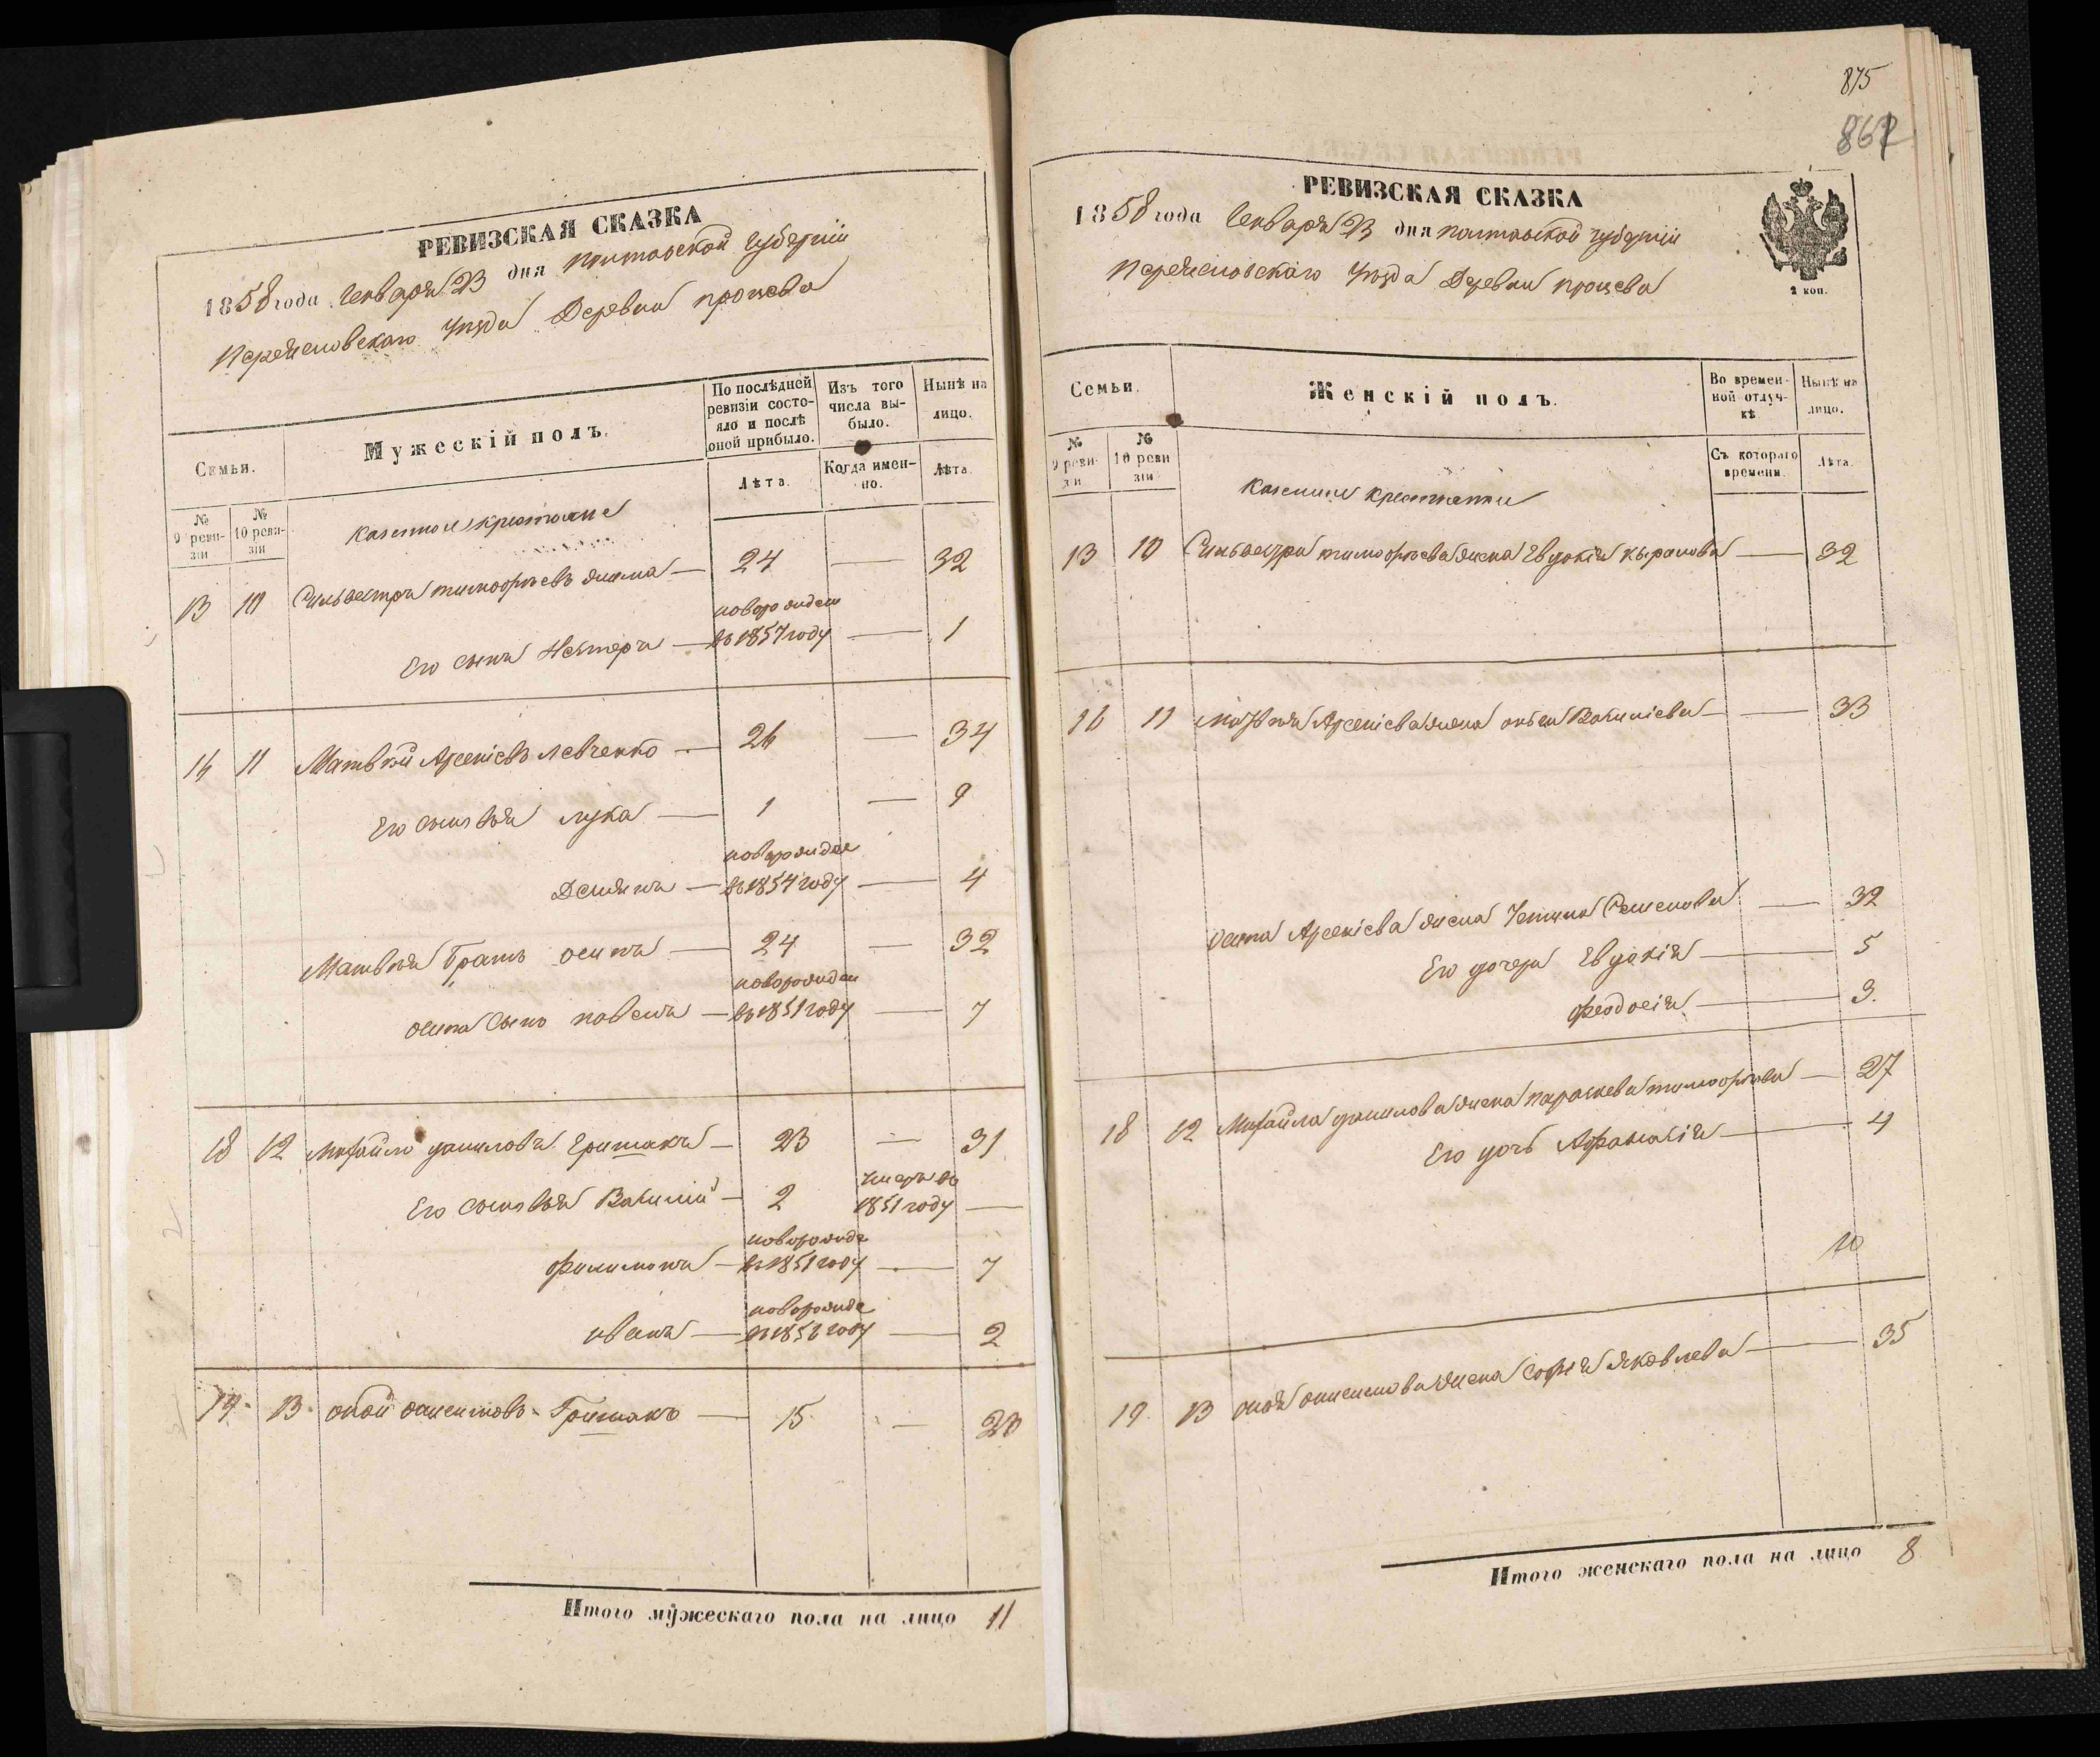 РЕВИЗСКАЯ СКАЗКА
1858 года Генваря 23 дня Полтавской губернии
Переяславскаго уезда Деревни Процева
Семьи.
Мужескій полъ.
По послѣдней ревизіи состо-
яло и послѣ
оной прибыло.
Изъ того
числа вы-
было.
Нынѣ на
лицо.
№
9 реви-
зіи
№
10 реви-
зіи
Лѣта.
Когда имен-
но.
Лѣта.
Казенные крестьяне
13 10 Сильвестръ Тимофѣевъ — 24 — 32
новорожден
Его сынъ Нестеръ — въ 1857 году — 1
16 11 Матвѣй Арсеніевъ Левченко — 26 — 34
Его сыновья Лука — 1 — 9
новорожден
Демянъ — въ 1854 году — 4
Матвѣя братъ Осипъ — 24 — 32
новорожден
Осипа сынъ Павелъ — въ 1851 году — 7
18 12 Михайло Даниловъ Гришакъ — 23 — 31
умеръ въ
Его сыновья Василій — 2 1851 году —
новорожде
Филимонъ — въ 1851 году — 7
новорожде
Иванъ — въ 1856 году — 2
19 13 Онисимовъ Гришакъ — 15 — 23
Итого мужескаго пола на лицо 11
875
862
РЕВИЗСКАЯ СКАЗКА
1858 года Генваря 23 дня Полтавской губернии
Переяславскаго уезда Деревни Процева
2 коп.
Семьи.
Женскій полъ.
Во времен-
ной отлуч-
кѣ
Нынѣ на
лицо.
№
9 реви-
зіи
№
10 реви
зіи
Съ котораго
времени.
Лѣта.
Казенные крестьянки
13 10 Сильвестра Тимофѣева жена Евдокія — 32
16 11 Матвѣя Арсеніева жена Васильева — — 33
Осипа Арсеніева жена Семенова — 32
Его дочери Евдокія — 5
Феодосія — 3.
18 12 Михайла Данилова жена Параскева Тимофѣева — 27
Его дочь Афанасія — 4
10
19. 13 Онисимова жена Софія Яковлева — 35
Итого женскаго пола на лицо 8